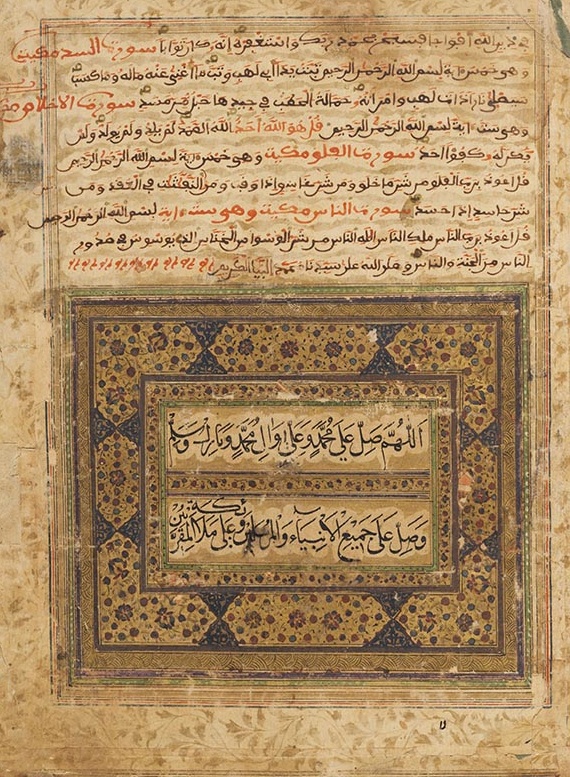 في دين الله أفواجا فسبح بحمد ربك واستغفره إنه كان توابا سورة المسد مكية
وهي خمس آية بسم الله الرحمن الرحيم تبت يدا أبي لهب وتب ما أغنى عنه ماله وما كسب
سيصلى نارا ذات لهب وامرأته حمالة الحطب في جيدها حبل من مسد سورة الإخلاص
وهي ست آية بسم الله الرحمن الرحيم قل هو الله أحد الله الصمد لم يلد ولم يولد ولم
يكن له كفوا أحد سورة الفلق مكية وهي خمس آية بسم الله الرحمن الرحيم
قل أعوذ برب الفلق من شر ما خلق ومن شر غاسق إذا وقب ومن شر النفثت في العقد ومن
شر حاسد إذا حسد سورة الناس مكية وهي ست آية بسم الله الرحمن الرحيم
قل أعوذ برب الناس ملك الناس إله الناس من شر الوسواس الخناس الذي يوسوس في صدور
الناس من الجنة والناس وصلى الله على سيدنا محمد النبي الكريم
اَللّٰهُمَّ صَلِّ عَلَى مُحَمَّدٍ وَعَلَى اٰلِ مُحَمَّدٍ وَبَارِكْ وَسَلِّمْ
وَصَلِّ عَلَى جَمِيعِ الْأَنْبِيَاءِ وَالْمُرْسَلِينَ وَعَلَى مَلَائِكَةِ الْمُقَرَّبِينَ